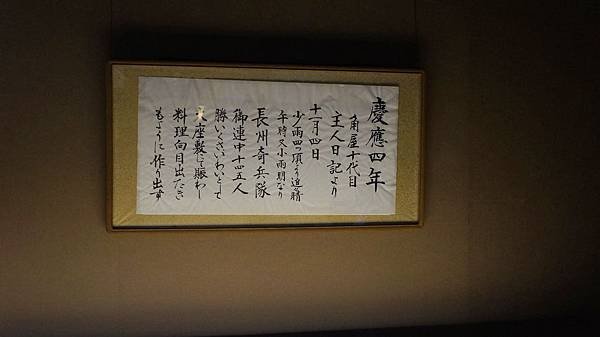 慶應四年
角屋十代目
主人日記より
十一月四日
少雨四つ頃より追々晴
午時又小雨朝なり
長州奇兵隊
御連中十四五人
勝いくさいわいとして
大座敷にて賑わし
料理向目出たき
もように作り出す